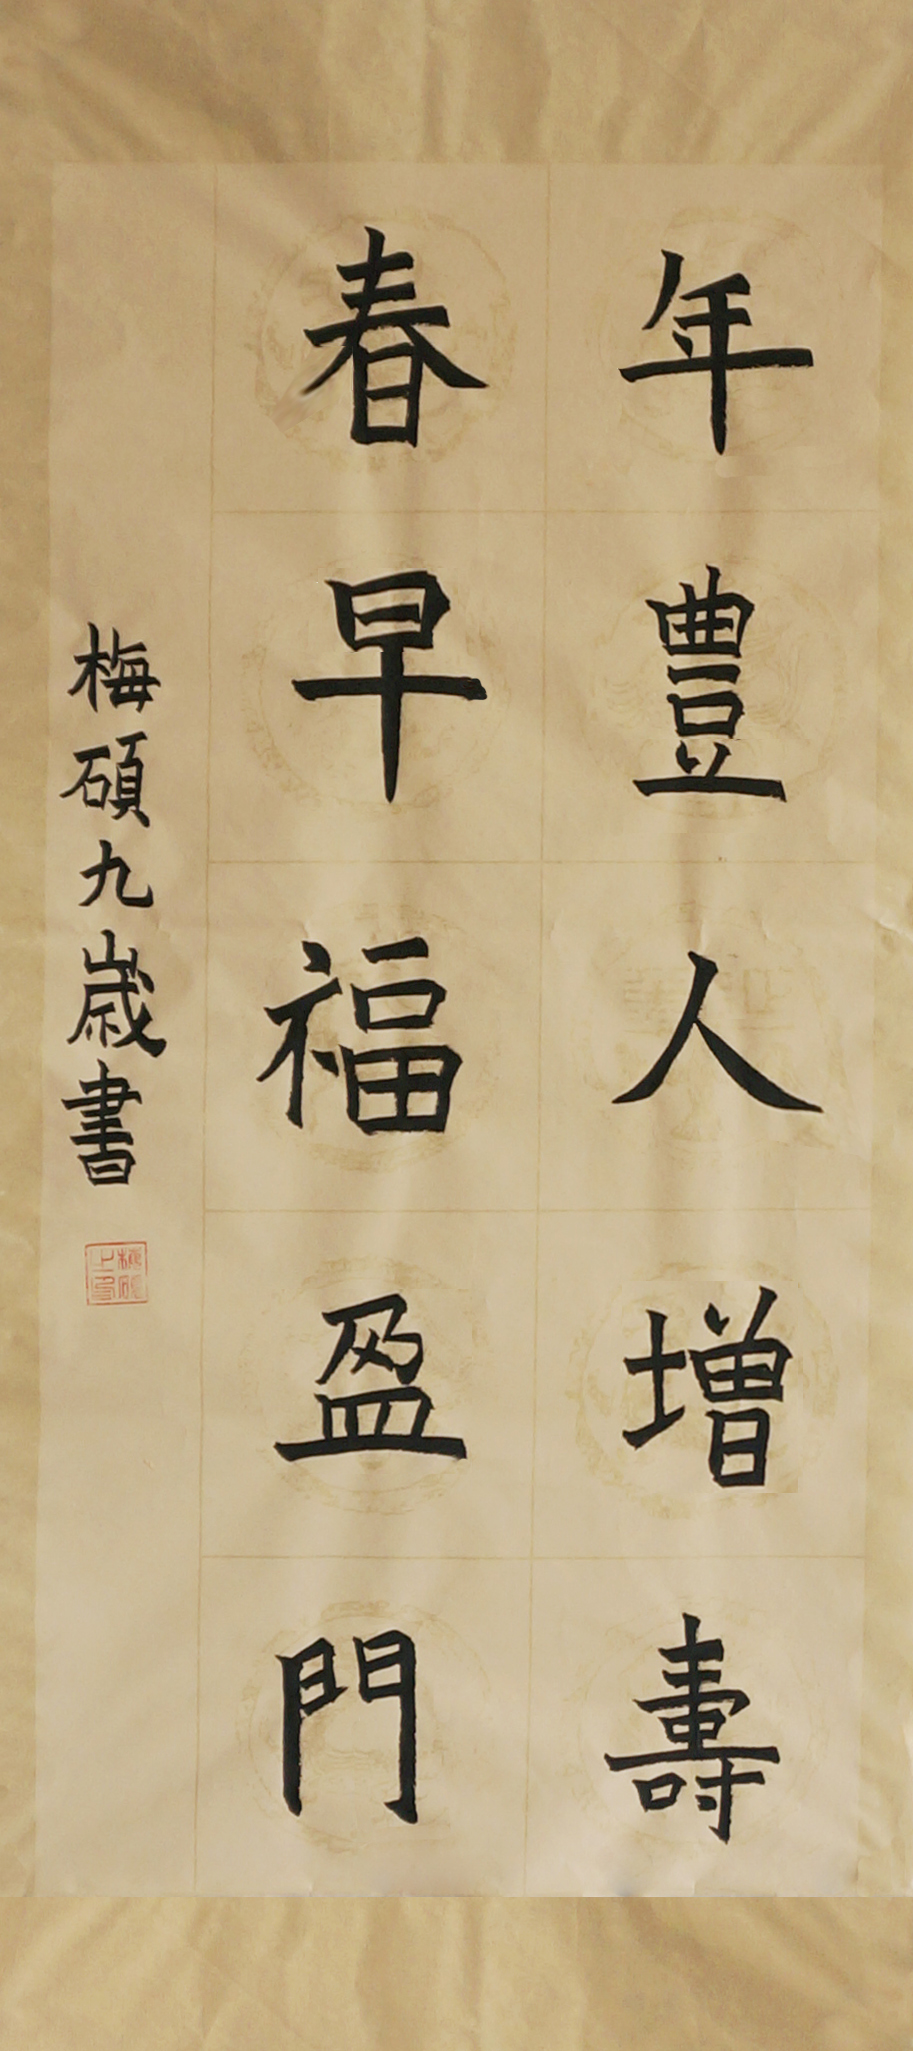 年豊人增壽
春早福盈門
梅碩九歲書